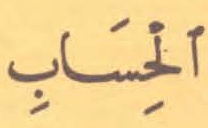 ٱلْحِسَابِ